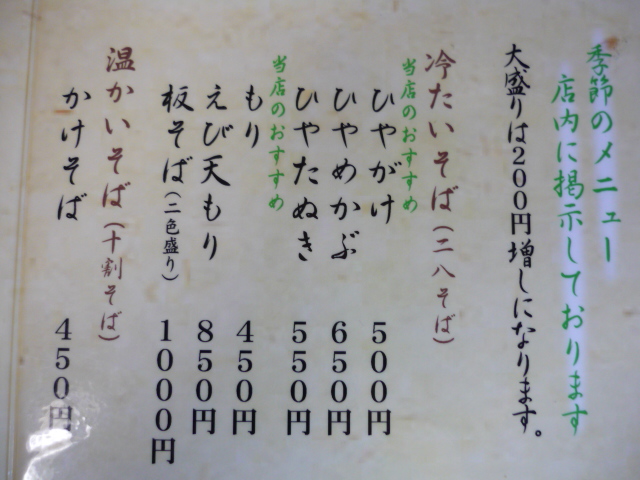 季節のメニュー
店内に掲示しております
大盛りは200円増しになります。
冷たいそば(二八そば)
当店のおすすめ
ひやがけ 500円
ひやめかぶ 650円
ひやたぬき 550円
当店のおすすめ
もり 450円
えび天もり 850円
板そば(二色盛り) 1000円
温かいそば(十割そば)
かけそば 450円